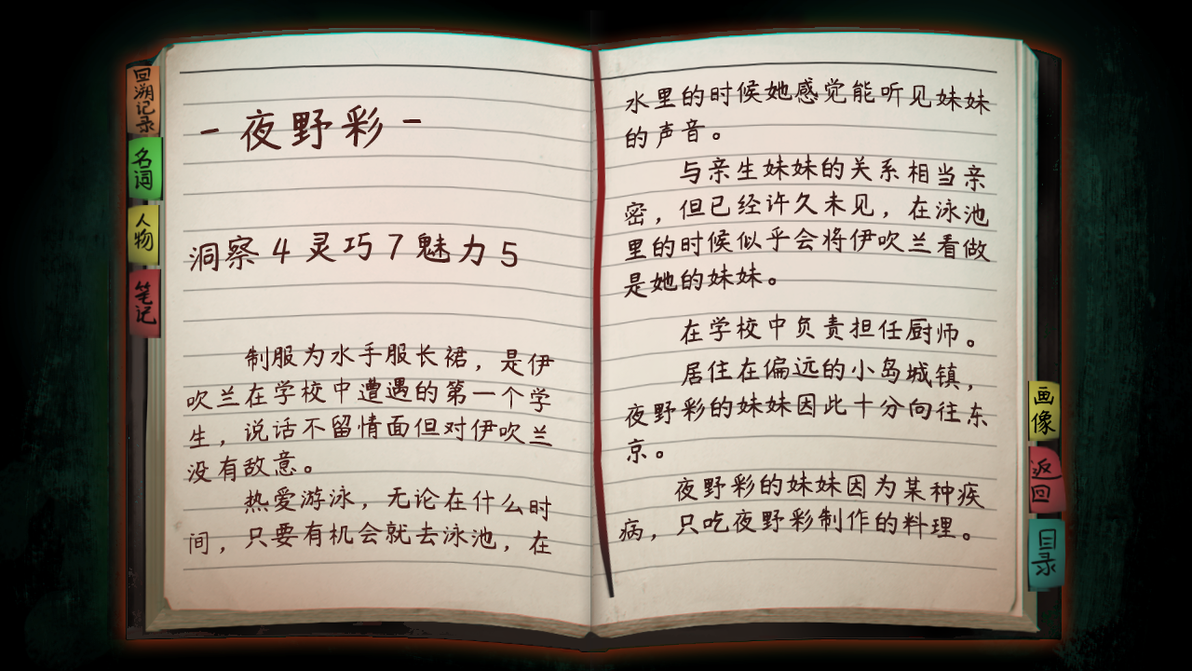 回溯记录
名词
人物
笔记
- 夜野彩 -
洞察 4 灵巧 7 魅力 5
制服为水手服长裙，是伊
吹兰在学校中遭遇的第一个学
生，说话不留情面但对伊吹兰
没有敌意。
热爱游泳，无论在什么时
间，只要有机会就去泳池，在
水里的时候她感觉能听见妹妹
的声音。
与亲生妹妹的关系相当亲
密，但已经许久未见，在泳池
里的时候似乎会将伊吹兰看做
是她的妹妹。
在学校中负责担任厨师。
居住在偏远的小岛城镇，
夜野彩的妹妹因此十分向往东
京。
夜野彩的妹妹因为某种疾
病，只吃夜野彩制作的料理。
画像
返回
目录